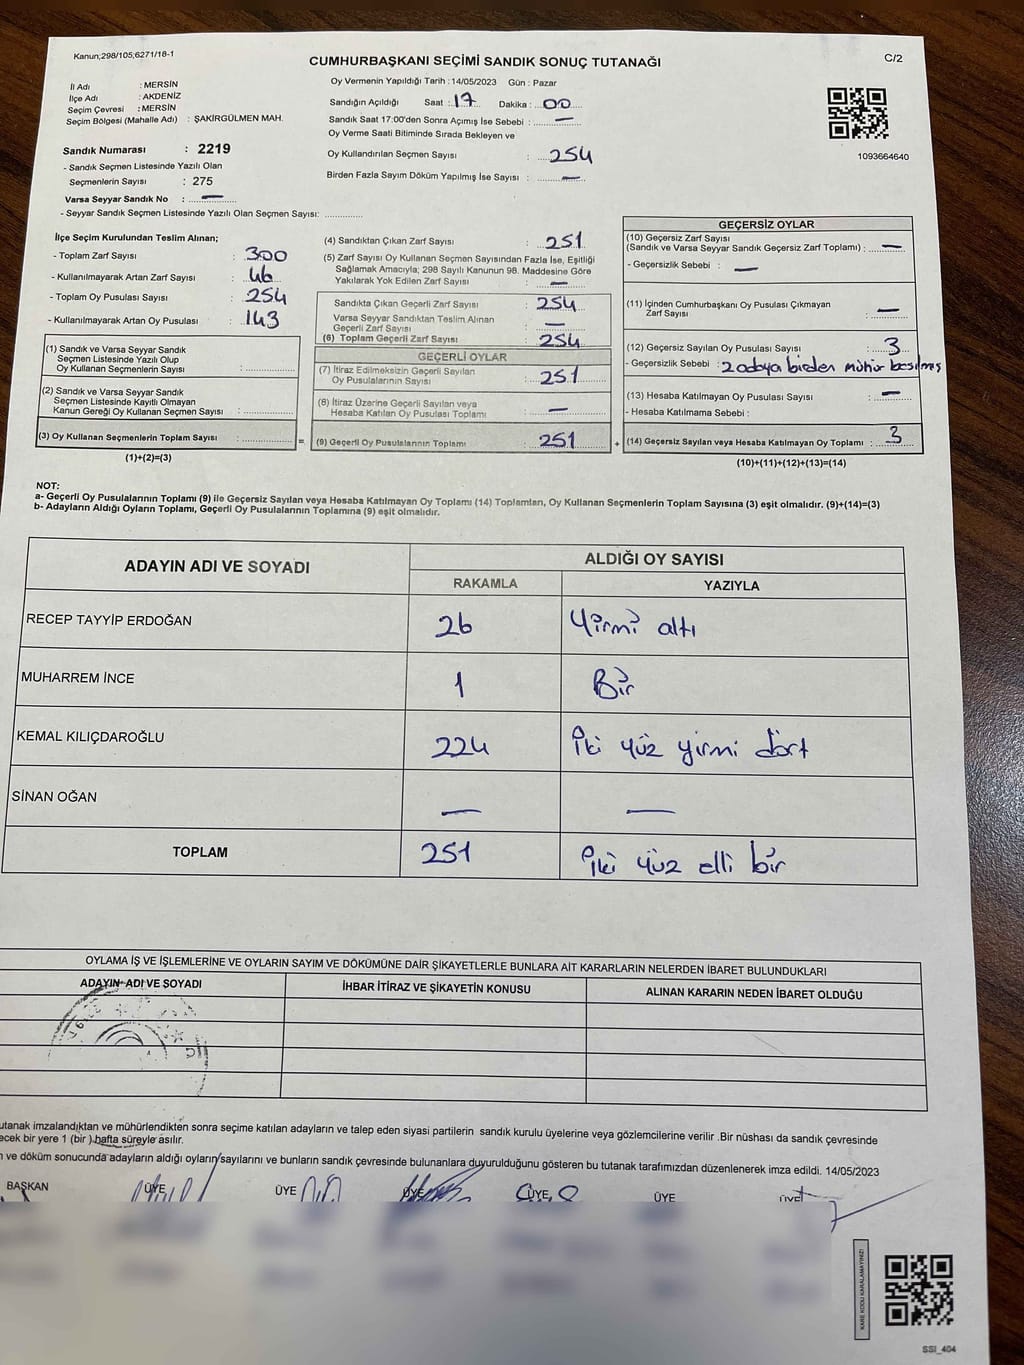 Kanun;298/105;6271/18-1
CUMHURBAŞKANI SEÇİMİ SANDIK SONUÇ TUTANAĞI
C/2
İl Adı : MERSİN
İlçe Adı : AKDENİZ
Seçim Çevresi : MERSİN
Seçim Bölgesi (Mahalle Adı) : ŞAKİRGÜLMEN MAH.
Sandık Numarası : 2219
- Sandık Seçmen Listesinde Yazılı Olan
Seçmenlerin Sayısı : 275
Varsa Seyyar Sandık No : —
- Seyyar Sandık Seçmen Listesinde Yazılı Olan Seçmen Sayısı: ..............
Oy Vermenin Yapıldığı Tarih : 14/05/2023 Gün : Pazar
Sandığın Açıldığı Saat : 17 Dakika : 00
Sandık Saat 17:00'den Sonra Açımış İse Sebebi : —
Oy Verme Saati Bitiminde Sırada Bekleyen ve
Oy Kullandırılan Seçmen Sayısı : 254
Birden Fazla Sayım Döküm Yapılmış İse Sayısı : —
1093664640
İlçe Seçim Kurulundan Teslim Alınan;
- Toplam Zarf Sayısı : 300
- Kullanılmayarak Artan Zarf Sayısı : 46
- Toplam Oy Pusulası Sayısı : 254
- Kullanılmayarak Artan Oy Pusulası : 143
(1) Sandık ve Varsa Seyyar Sandık
Seçmen Listesinde Yazılı Olup
Oy Kullanan Seçmenlerin Sayısı : ..............
(2) Sandık ve Varsa Seyyar Sandık
Seçmen Listesinde Kayıtlı Olmayan
Kanun Gereği Oy Kullanan Seçmen Sayısı : ..............
(3) Oy Kullanan Seçmenlerin Toplam Sayısı : .............. =
(1)+(2)=(3)
(4) Sandıktan Çıkan Zarf Sayısı : 251
(5) Zarf Sayısı Oy Kullanan Seçmen Sayısından Fazla İse, Eşitliği
Sağlamak Amacıyla; 298 Sayılı Kanunun 98. Maddesine Göre
Yakılarak Yok Edilen Zarf Sayısı : —
Sandıkta Çıkan Geçerli Zarf Sayısı : 254
Varsa Seyyar Sandıktan Teslim Alınan
Geçerli Zarf Sayısı : —
(6) Toplam Geçerli Zarf Sayısı : 254
GEÇERLİ OYLAR
(7) İtiraz Edilmeksizin Geçerli Sayılan
Oy Pusulalarının Sayısı : 251
(8) İtiraz Üzerine Geçerli Sayılan veya
Hesaba Katılan Oy Pusulası Toplamı : —
(9) Geçerli Oy Pusulalarının Toplamı : 251 +
GEÇERSİZ OYLAR
(10) Geçersiz Zarf Sayısı
(Sandık ve Varsa Seyyar Sandık Geçersiz Zarf Toplamı) : —
- Geçersizlik Sebebi : —
(11) İçinden Cumhurbaşkanı Oy Pusulası Çıkmayan
Zarf Sayısı : —
(12) Geçersiz Sayılan Oy Pusulası Sayısı : 3
- Geçersizlik Sebebi : 2 adaya birden mühür basılmış
(13) Hesaba Katılmayan Oy Pusulası Sayısı : —
- Hesaba Katılmama Sebebi :
(14) Geçersiz Sayılan veya Hesaba Katılmayan Oy Toplamı : 3
(10)+(11)+(12)+(13)=(14)
NOT:
a- Geçerli Oy Pusulalarının Toplamı (9) ile Geçersiz Sayılan veya Hesaba Katılmayan Oy Toplamı (14) Toplamları, Oy Kullanan Seçmenlerin Toplam Sayısına (3) eşit olmalıdır. (9)+(14)=(3)
b- Adayların Aldığı Oyların Toplamı, Geçerli Oy Pusulalarının Toplamına (9) eşit olmalıdır.
ADAYIN ADI VE SOYADI
ALDIĞI OY SAYISI
RAKAMLA YAZIYLA
RECEP TAYYİP ERDOĞAN 26 Yirmi altı
MUHARREM İNCE 1 Bir
KEMAL KILIÇDAROĞLU 224 İki yüz yirmi dört
SİNAN OĞAN — —
TOPLAM 251 İki yüz elli bir
OYLAMA İŞ VE İŞLEMLERİNE VE OYLARIN SAYIM VE DÖKÜMÜNE DAİR ŞİKAYETLERLE BUNLARA AİT KARARLARIN NELERDEN İBARET BULUNDUKLARI
ADAYIN ADI VE SOYADI İHBAR İTİRAZ VE ŞİKAYETİN KONUSU ALINAN KARARIN NEDEN İBARET OLDUĞU
utanak imzalandıktan ve mühürlendikten sonra seçime katılan adayların ve talep eden siyasi partilerin sandık kurulu üyelerine veya gözlemcilerine verilir .Bir nüshası da sandık çevresinde
ecek bir yere 1 (bir ) hafta süreyle asılır.
n ve döküm sonucunda adayların aldığı oyların/sayılarını ve bunların sandık çevresinde bulunanlara duyurulduğunu gösteren bu tutanak tarafımızdan düzenlenerek imza edildi. 14/05/2023
BAŞKAN ÜYE ÜYE ÜYE ÜYE ÜYE ÜYE
KARE KODU KARALAMAYINIZ!
SSI_404